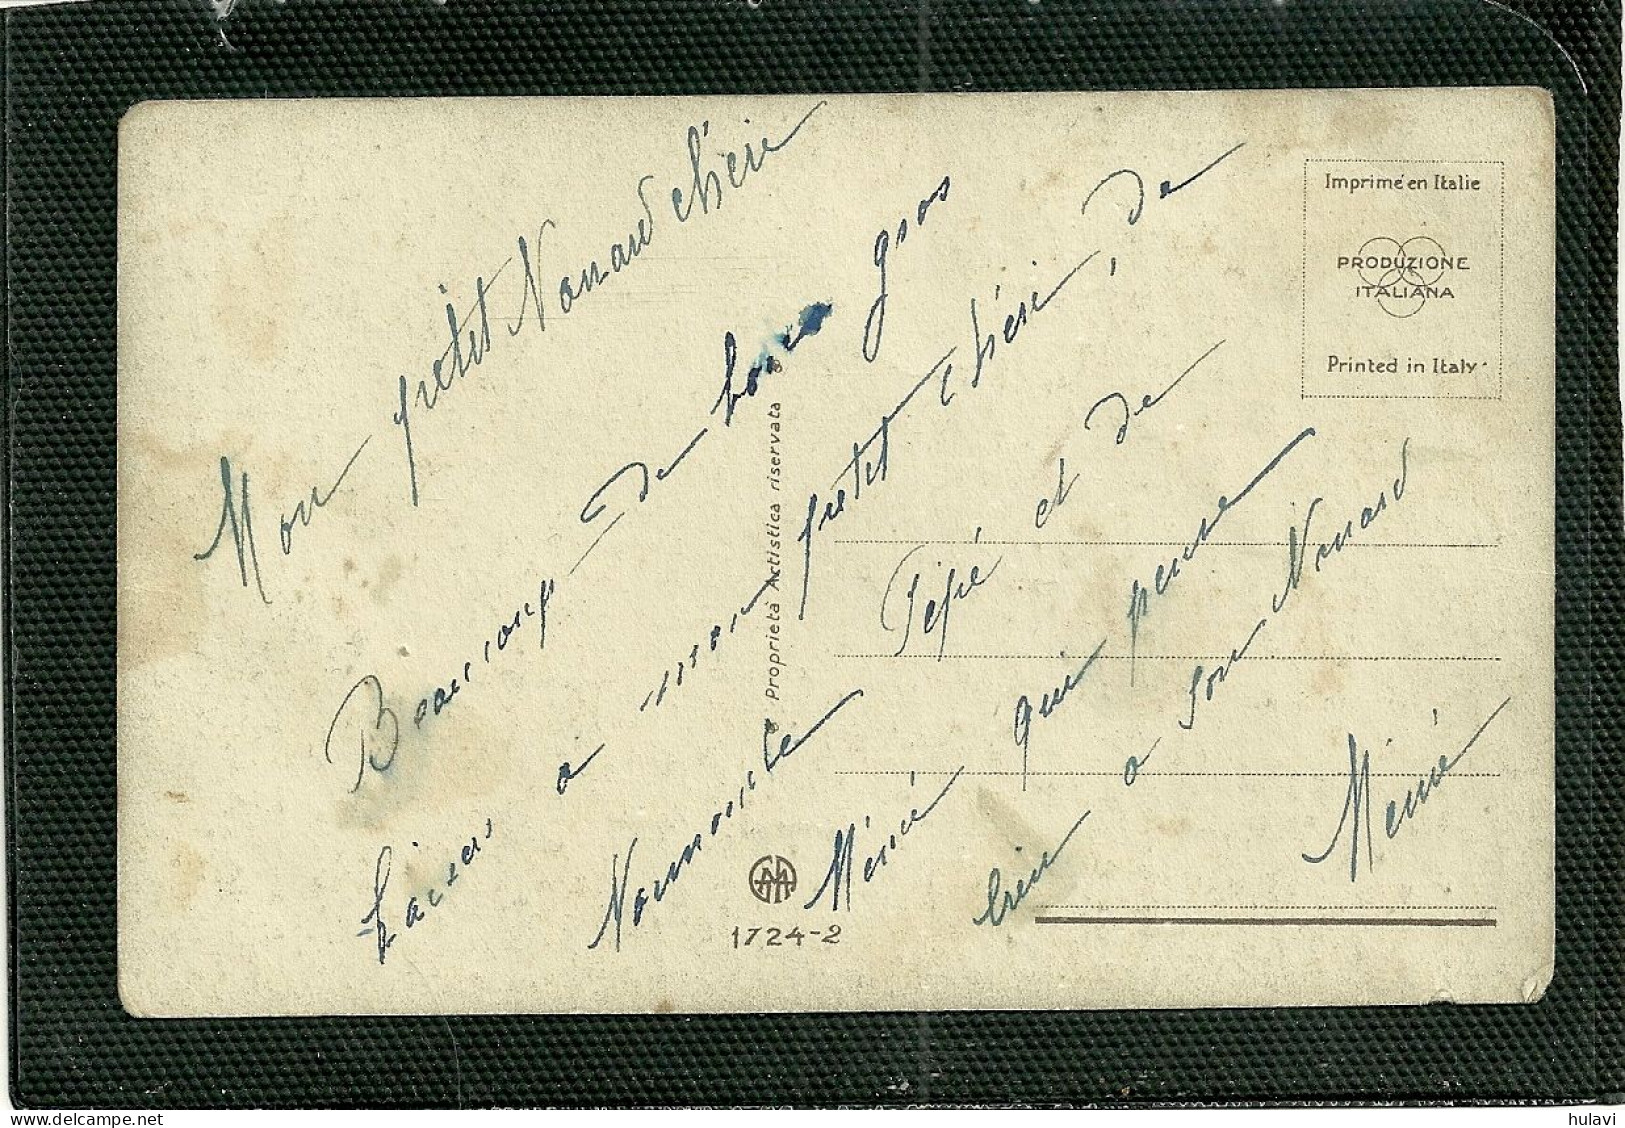 Mon petit Nonard chéri
Beaucoup de bons gros
baisers à mon petit chéri, de
Pépé et de
Mémé qui pense
bien a son Nonard
Mémé
Imprimé en Italie
PRODUZIONE
ITALIANA
Printed in Italy
Proprietà Artistica riservata
1724-2
delcampe.net
hulavi